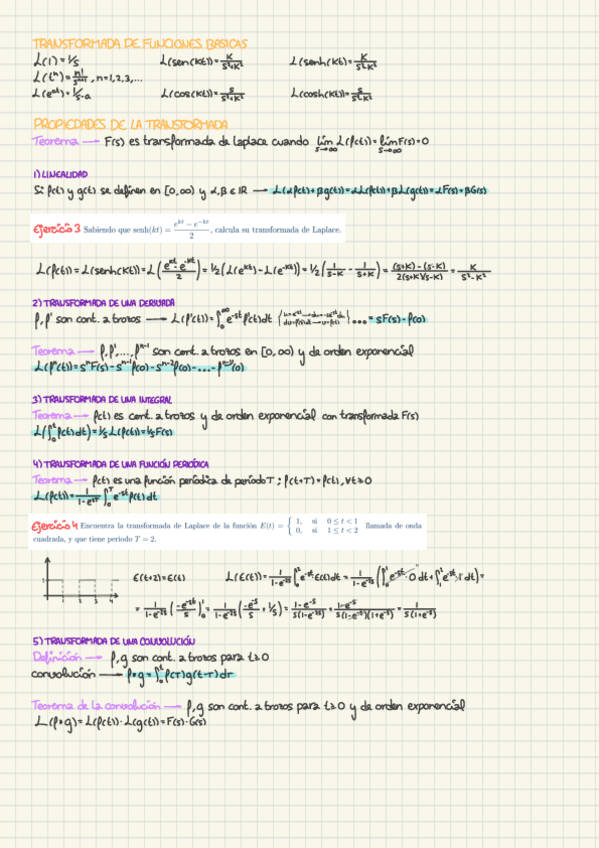 TRANSFORMADA DE FUNCIONES BASICAS
L(1) = 1/s    L(sen(kt)) = k/(s²+k²)    L(senh(kt)) = k/(s²-k²)
L(tⁿ) = n!/sⁿ⁺¹, n=1,2,3,...
L(e^(at)) = 1/s-a    L(cos(kt)) = s/(s²+k²)    L(cosh(kt)) = s/(s²-k²)
PROPIEDADES DE LA TRANSFORMADA
Teorema → F(s) es transformada de laplace cuando lim s→∞ L(f(t)) = lim s→∞ F(s) = 0
1) LINEALIDAD
Si f(t) y g(t) se definen en [0,∞) y α,β ∈ ℝ → L(αf(t)+βg(t)) = αL(f(t))+βL(g(t)) = αF(s)+βG(s)
Ejercicio 3 Sabiendo que senh(kt) = (e^(kt) − e^(−kt))/2, calcula su transformada de Laplace.
L(f(t)) = L(senh(kt)) = L((e^(kt) - e^(-kt))/2) = 1/2 (L(e^(kt)) - L(e^(-kt))) = 1/2 (1/(s-k) - 1/(s+k)) = ((s+k)-(s-k))/(2(s+k)(s-k)) = k/(s²-k²)
2) TRANSFORMADA DE UNA DERIVADA
f, f' son cont. a trozos → L(f'(t)) = ∫₀^∞ e^(-st) f'(t)dt {u=e^(-st) → du=-se^(-st)dt
dv=f'(t)dt → v=f(t)} .... = sF(s) - f(0)
Teorema → f, f', ..., fⁿ⁻¹ son cont. a trozos en [0,∞) y de orden exponencial
L(fⁿ(t)) = sⁿF(s) - sⁿ⁻¹f(0) - sⁿ⁻²f'(0) - ... - fⁿ⁻¹(0)
3) TRANSFORMADA DE UNA INTEGRAL
Teorema → f(t) es cont. a trozos y de orden exponencial con transformada F(s)
L(∫₀ᵗ f(t)dt) = 1/s L(f(t)) = 1/s F(s)
4) TRANSFORMADA DE UNA FUNCIÓN PERIÓDICA
Teorema → f(t) es una función periódica de periodo T ; f(t+T) = f(t), ∀t≥0
L(f(t)) = 1/(1-e^(-sT)) ∫₀ᵀ e^(-st) f(t)dt
Ejercicio 4 Encuentra la transformada de Laplace de la función E(t) = { 1, si 0 ≤ t < 1
0, si 1 ≤ t < 2 llamada de onda
cuadrada, y que tiene periodo T = 2.
E(t+2) = E(t)    L(E(t)) = 1/(1-e^(-2s)) ∫₀² e^(-st)·E(t)dt = 1/(1-e^(-2s)) (∫₀¹ e^(-st)·0 dt + ∫₀¹ e^(-st)·1 dt) =
1 2 3 4
= 1/(1-e^(-2s)) (-e^(-st)/s)₀¹ = 1/(1-e^(-2s)) (-e^(-s)/s + 1/s) = (1-e^(-s))/(s(1-e^(-2s))) = (1-e^(-s))/(s(1-e^(-s))(1+e^(-s))) = 1/(s(1+e^(-s)))
5) TRANSFORMADA DE UNA CONVOLUCIÓN
Definición → f, g son cont. a trozos para t≥0
convolución → f*g = ∫₀ᵗ f(τ)g(t-τ)dτ
Teorema de la convolución → f, g son cont. a trozos para t≥0 y de orden exponencial
L(f*g) = L(f(t))·L(g(t)) = F(s)·G(s)